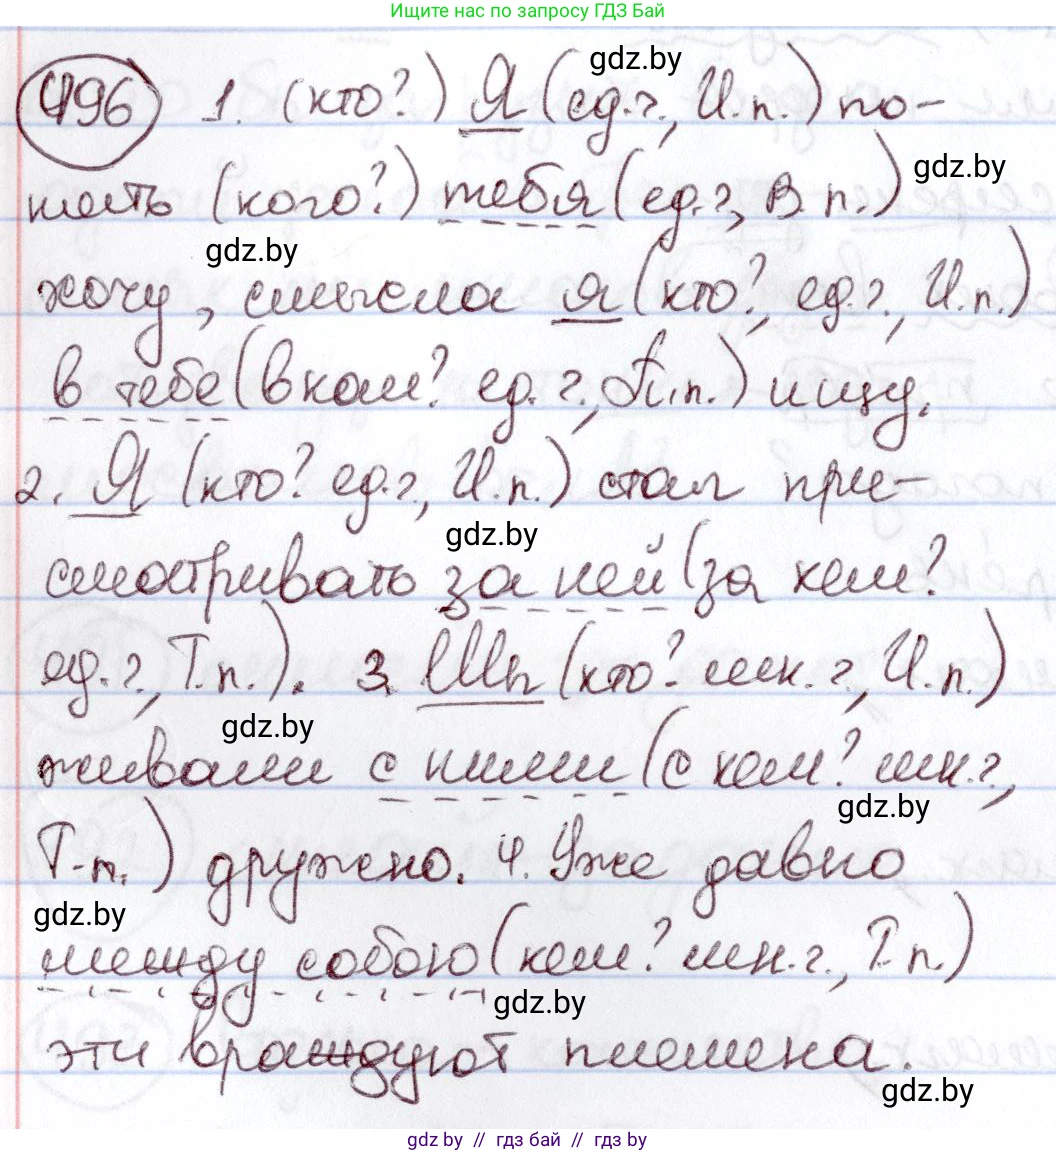 Ищите нас по запросу ГДЗ Бай
gdz.by
496 1. (кто?) Я (ед.ч., И.п.) по-
gdz.by
нять (кого?) тебя (ед.ч., В.п.)
gdz.by
хочу, смысла я (кто?, ед.ч., И.п.)
в тебе (в ком? ед.ч., П.п.) ищу.
2. Я (кто? ед.ч., И.п.) стал при-
gdz.by
сматривать за ней (за кем?
ед.ч., Т.п.). 3. Мы (кто? мн.ч., И.п.)
gdz.by
живали с ними (с кем? мн.ч.,
gdz.by
Т.п.) дружно. 4. Уже давно
gdz.by
между собою (кем? мн.ч., Т.п.)
gdz.by
эти враждуют племена.
gdz.by
gdz by // гдз бай // гдз by